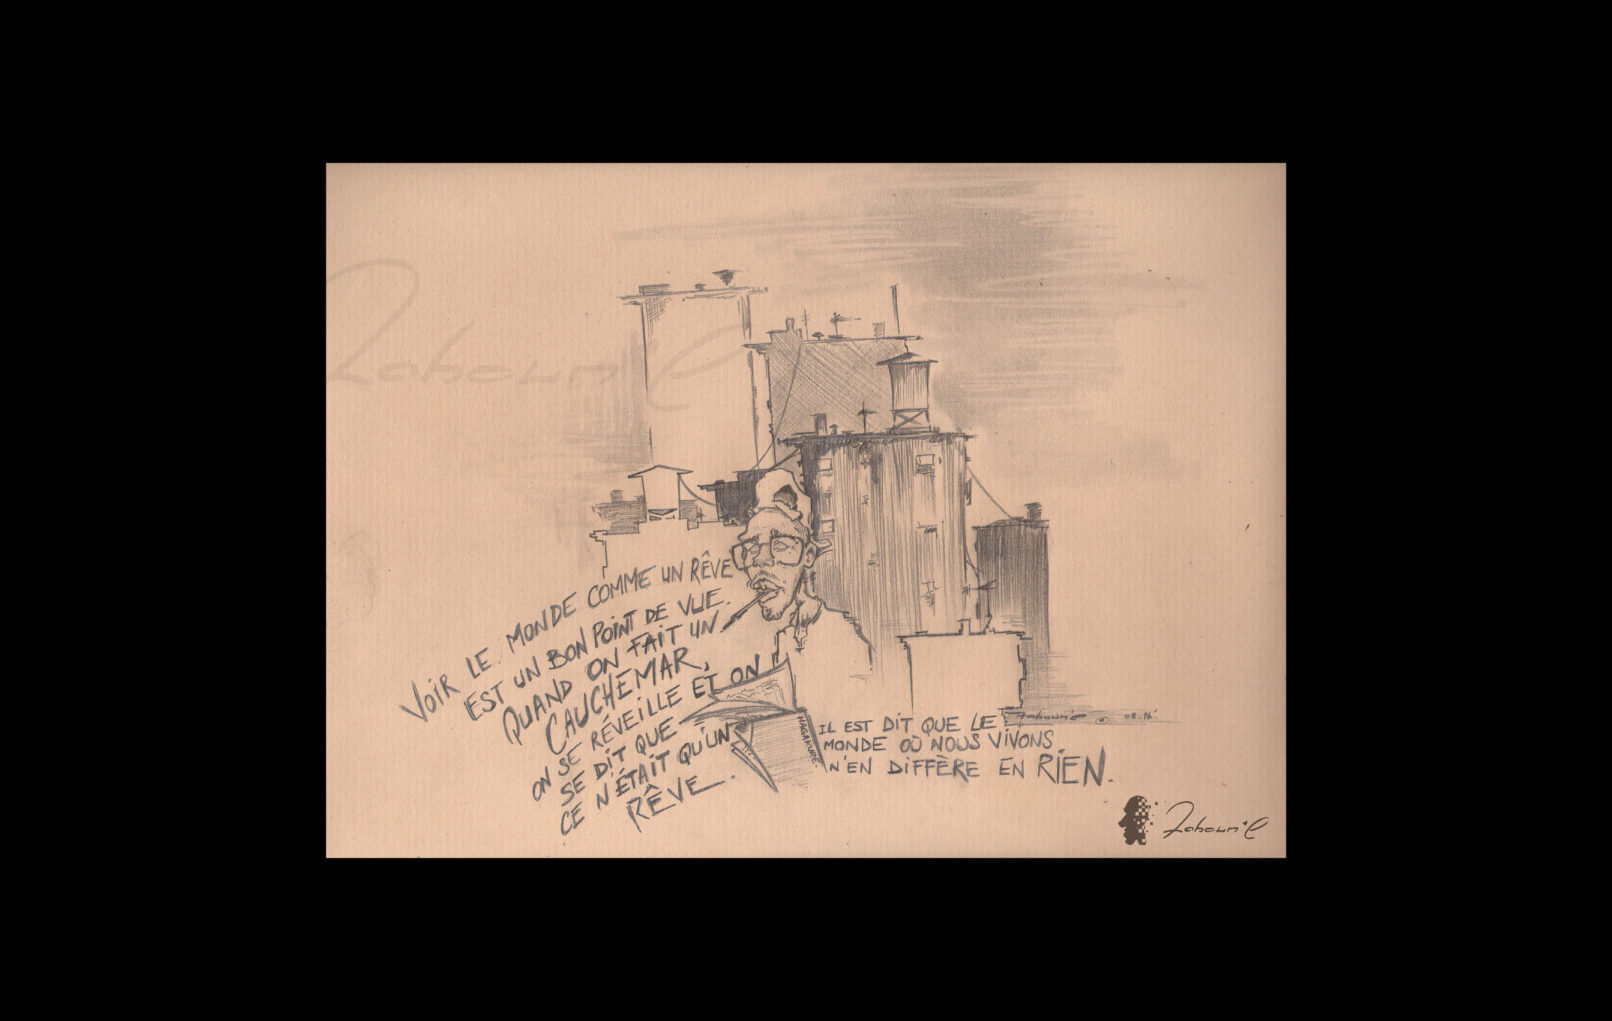 VOIR LE MONDE COMME UN RÊVE
EST UN BON POINT DE VUE.
QUAND ON FAIT UN
CAUCHEMAR,
ON SE RÉVEILLE ET ON
SE DIT QUE
CE N'ÉTAIT QU'UN
RÊVE.
HAGAKURE.
IL EST DIT QUE LE
MONDE OÙ NOUS VIVONS
N'EN DIFFÈRE EN RIEN.
Zaboum'e © 08.16'
Zaboum'e